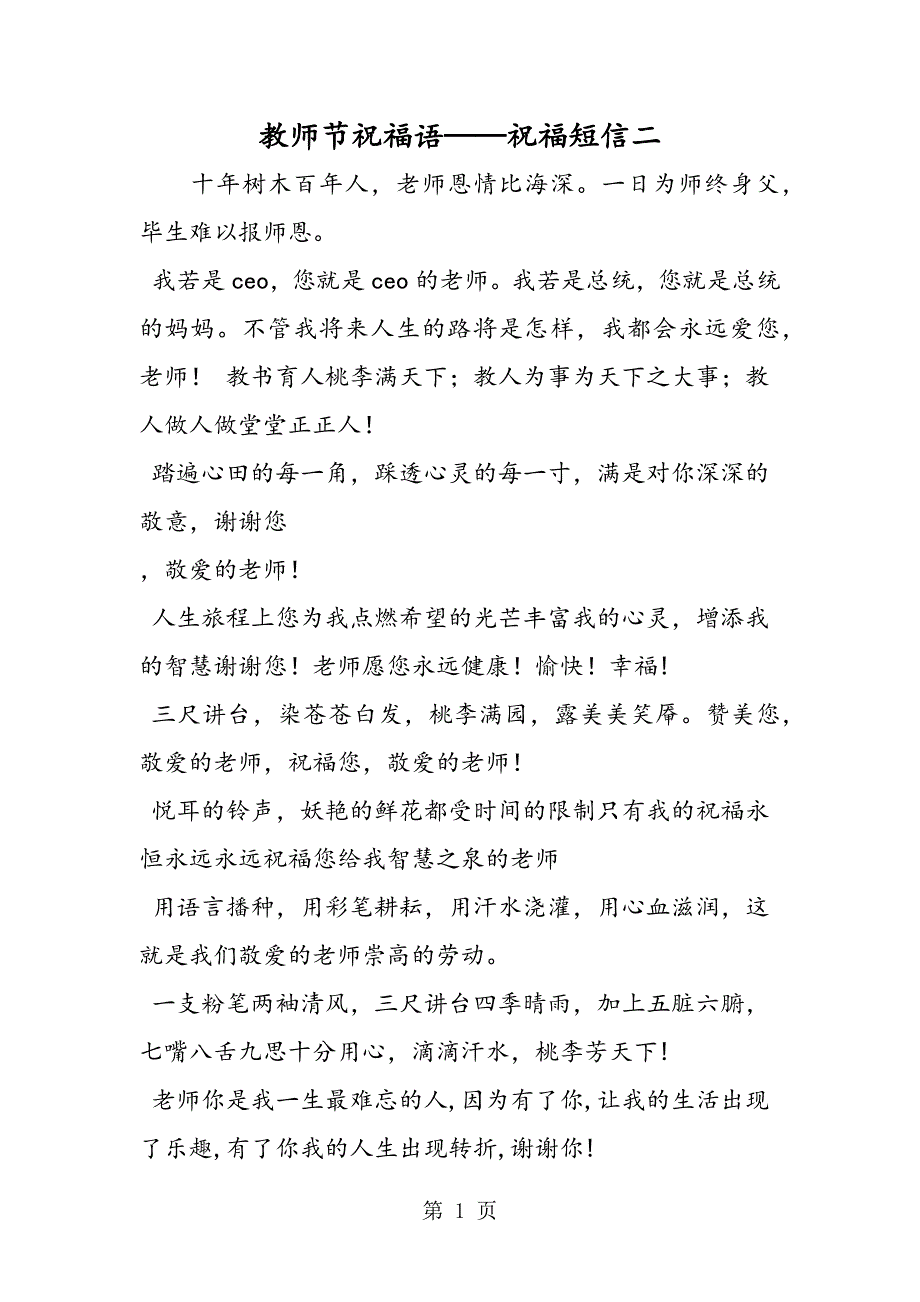 教师节祝福语——祝福短信二
十年树木百年人，老师恩情比海深。一日为师终身父，
毕生难以报师恩。
我若是ceo，您就是ceo的老师。我若是总统，您就是总统
的妈妈。不管我将来人生的路将是怎样，我都会永远爱您，
老师！ 教书育人桃李满天下；教人为事为天下之大事；教
人做人做堂堂正正人！
踏遍心田的每一角，踩透心灵的每一寸，满是对你深深的
敬意，谢谢您
，敬爱的老师！
人生旅程上您为我点燃希望的光芒丰富我的心灵，增添我
的智慧谢谢您！老师愿您永远健康！愉快！幸福！
三尺讲台，染苍苍白发，桃李满园，露美美笑厣。赞美您，
敬爱的老师，祝福您，敬爱的老师！
悦耳的铃声，妖艳的鲜花都受时间的限制只有我的祝福永
恒永远永远祝福您给我智慧之泉的老师
用语言播种，用彩笔耕耘，用汗水浇灌，用心血滋润，这
就是我们敬爱的老师崇高的劳动。
一支粉笔两袖清风，三尺讲台四季晴雨，加上五脏六腑，
七嘴八舌九思十分用心，滴滴汗水，桃李芳天下！
老师你是我一生最难忘的人,因为有了你,让我的生活出现
了乐趣,有了你我的人生出现转折,谢谢你！
第 1 页